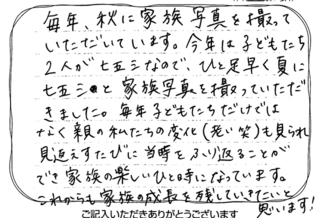 毎年、秋に家族写真を撮って
いただいています。今年は子どもたち
2人が七五三なので、ひと足早く夏に
七五三と家族写真を撮っていただ
きました。毎年子どもたちだけでは
なく親の私たちの変化(老い笑)も見られ
見返えすたびに当時をふり返ることが
でき家族の楽しいひと時になっています
これからも家族の成長を残していきたいと
思います!
ご記入いただきありがとうございます